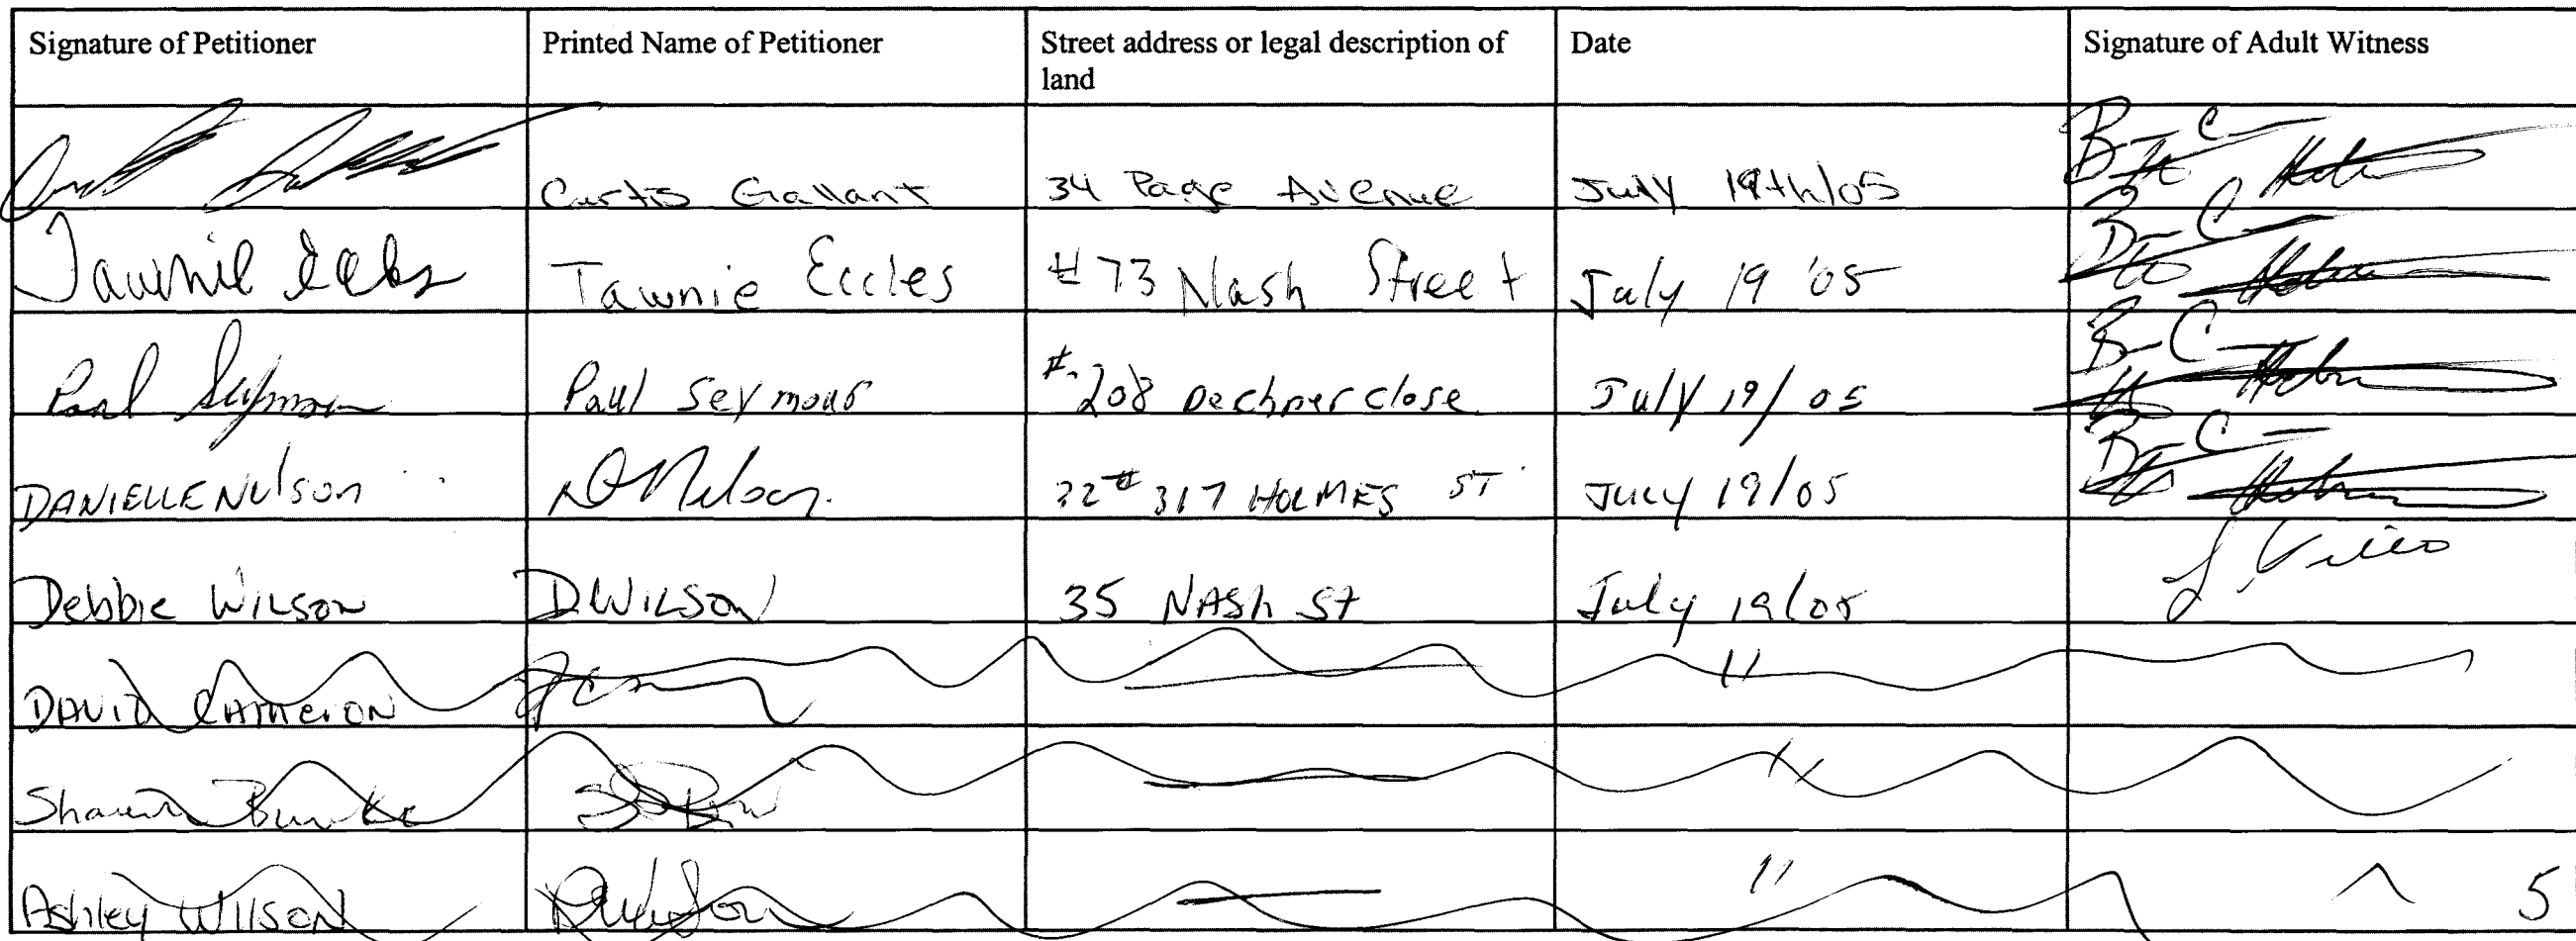 Signature of Petitioner Printed Name of Petitioner Street address or legal description of Date Signature of Adult Witness
land
Curtis Gallant 34 Page Avenue July 19th/05
Tawnie Eccles Tawnie Eccles #73 Nash Street July 19 '05
Paul Seymour Paul Seymour #208 Dechner close July 19/05
DANIELLE Nelson D Nelson 32# 317 HOLMES ST July 19/05
Debbie WILSON D WILSON 35 NASH St July 19/05
DAVID CAMERON 11
Shawn Burke 11
Ashley WILSON 11 5